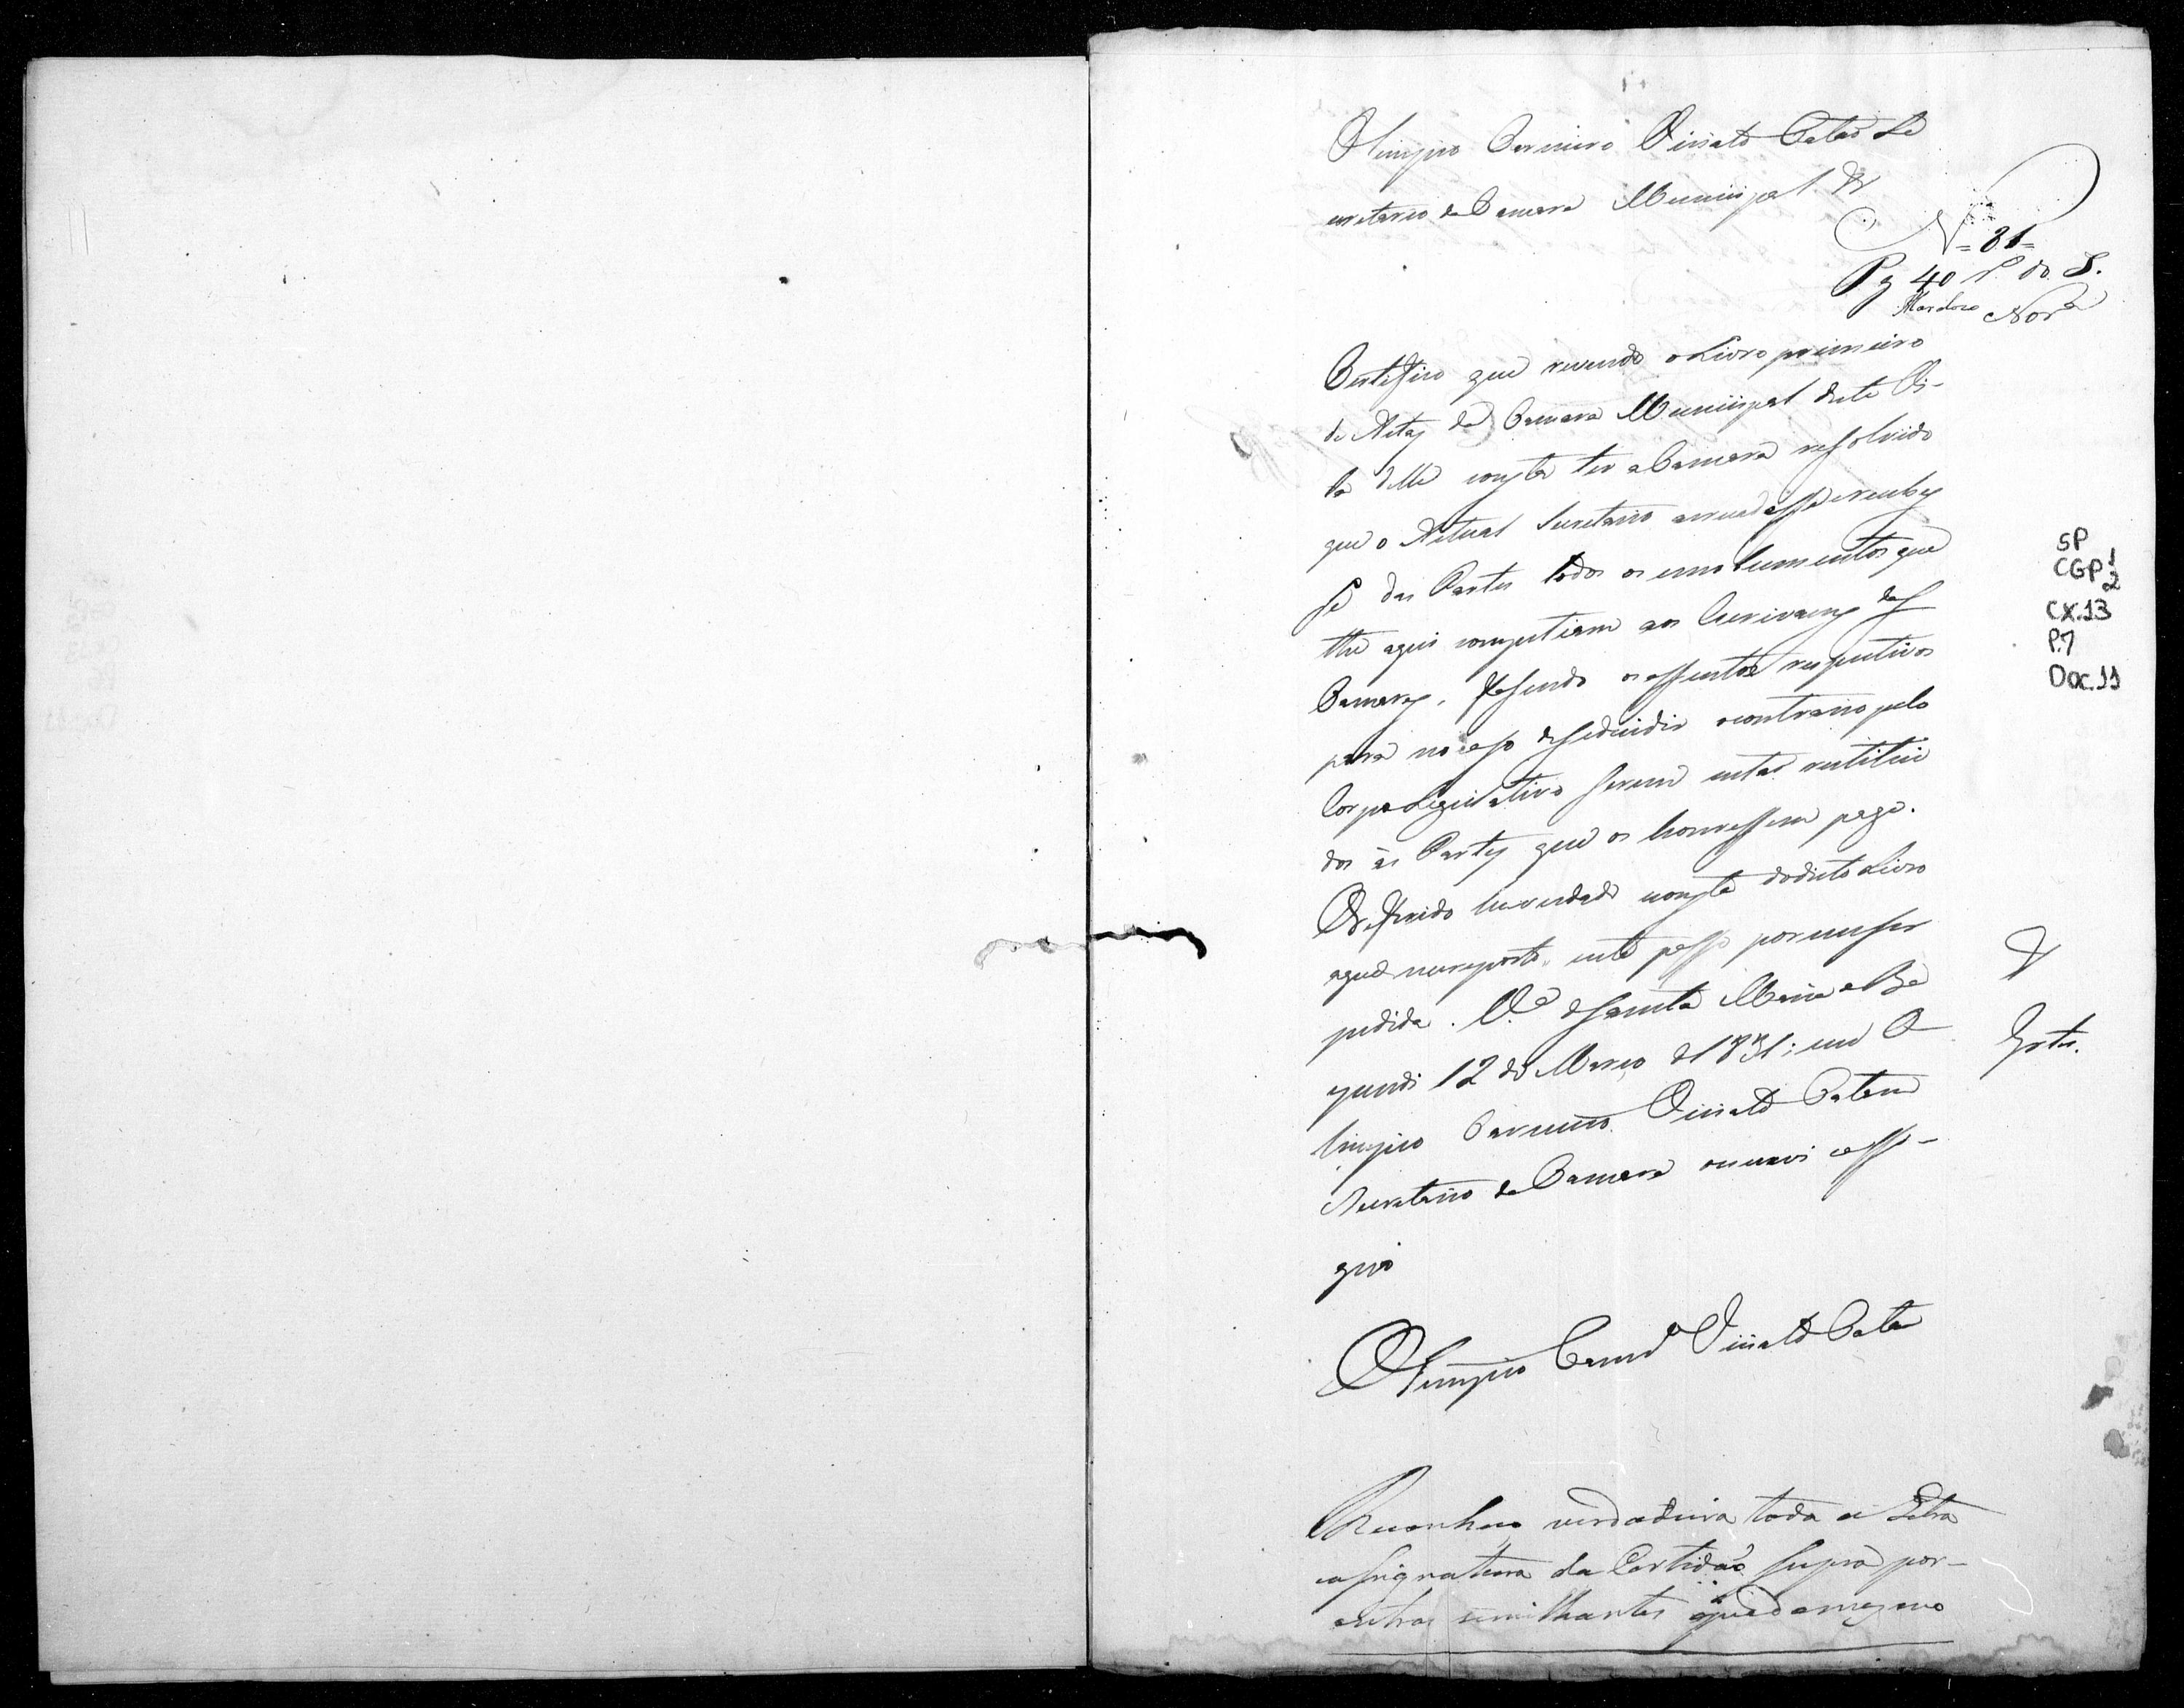 Olimpio Carneiro Viriato Catão Se
cretario da Camara Municipal &
N = 81 =
Pg 40 r. do S.
Nor.a
Certifico que revendo o Livro primeiro
de Actas da Camara Municipal desta Vi-
la delle consta ter a Camara resolvido
que o Actual Secretario arrecadasse e recebes
se das Partes todos os emolumentos que
the aqui competiam aos Escrivaens das
Camaras, fasendo os assentos respectivos
para no caso de se decidir o contrario pelo
Corpo Legislativo serem estas restitui
dos ás Partes que os houvessem pago.
O referido he verdade consta do dicto Livro
a que me reporto. esta passo por me ser
pedida. V.a de Santa Maria de Ba
ependi 12 de Março de 1831; eu O
limpio Carneiro Viriato Catam
Secretario da Camara escrevi e assi-
gno
&
Grtis.
Olimpio Carn.o Viriato Catão
Reconheço verdadeira toda a Letra
e asignatura da Certidaõ supra por
outras semilhantes que do mesmo
SP
CGP 1
2
CX.13
P.7
Doc.11